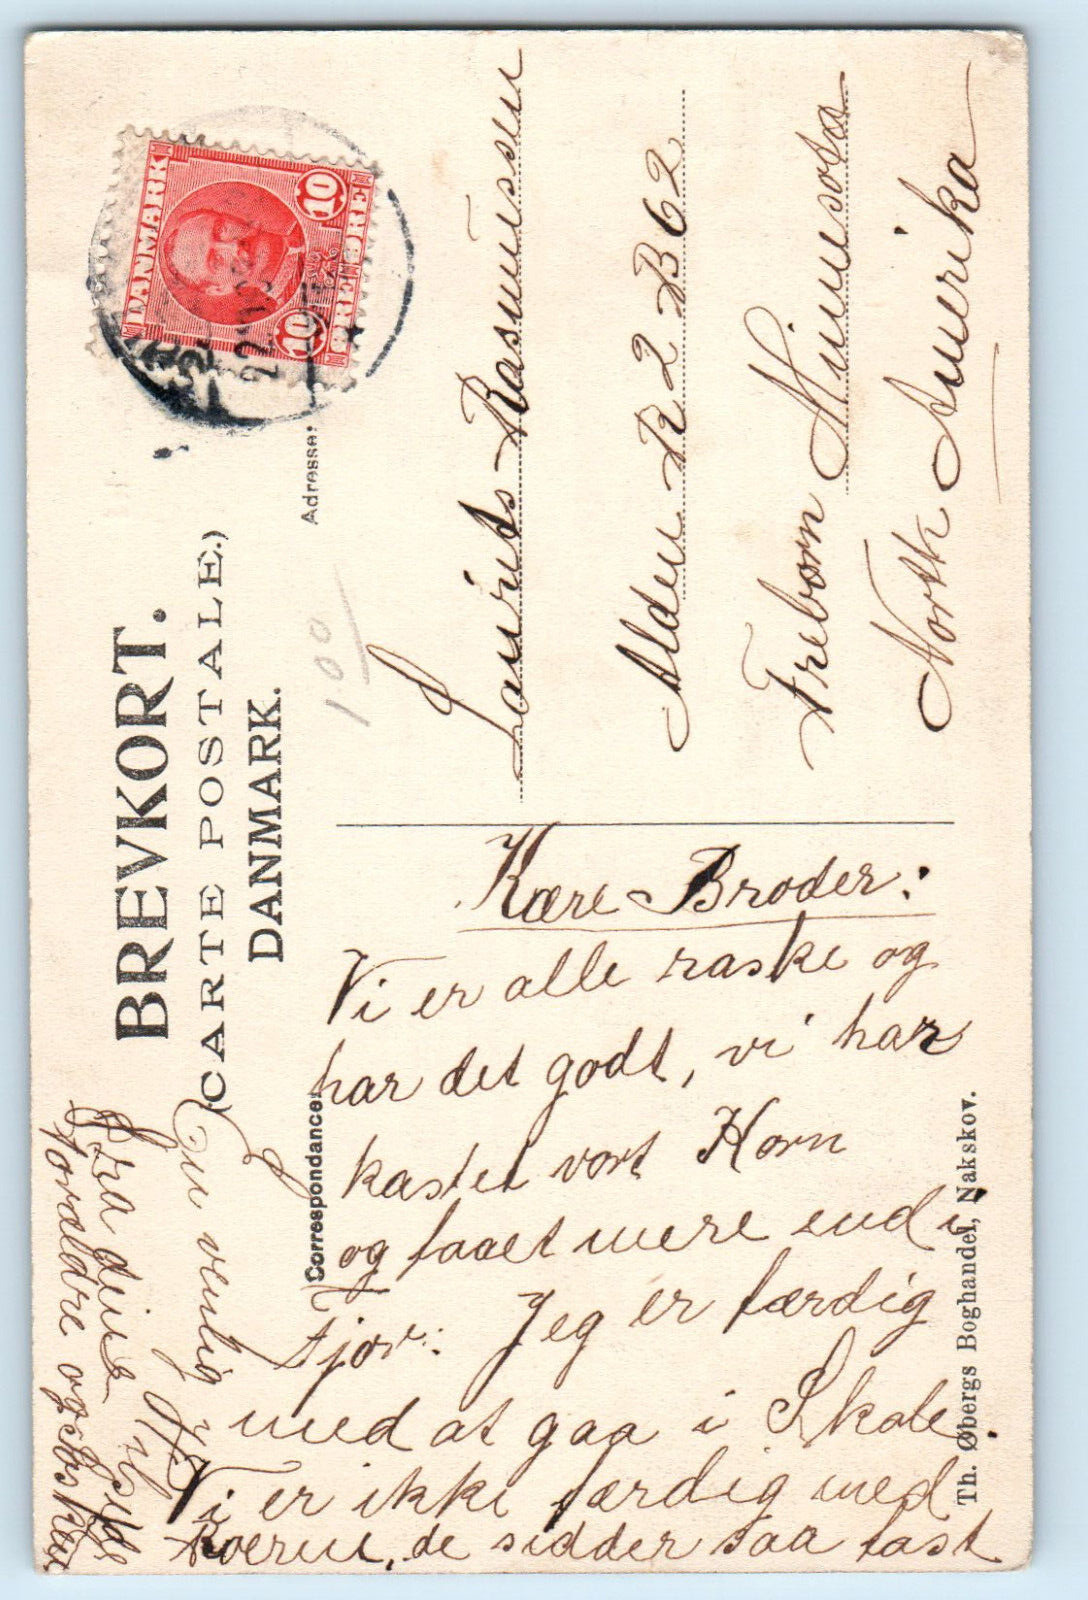 BREVKORT.
(CARTE POSTALE.)
DANMARK.
DANMARK
10 10
ØRE
Adresse.
100
Laurits Rasmussen
Alden R 2 B 62
Freborn Minnesota
North Amerika
Correspondance:
Kære Broder:
Vi er alle raske og
har det godt, vi har
kastet vort Korn
og faaet mere end i
Fjor. Jeg er færdig
med at gaa i Skole.
Vi er ikke færdig med
Roerne, de sidder saa fast
En venlig
Fra dine
Forældre og
Th. Øbergs Boghandel, Nakskov.